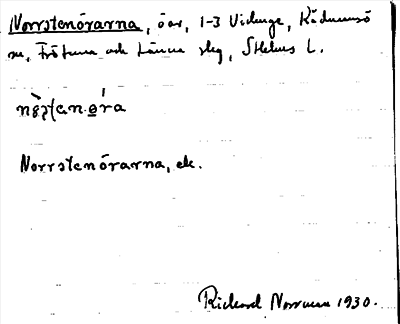 Norrstenörarna, öar, 1-3 Vidinge, Rådmansö
sn, Frötuna och Länna slg, Sthlms L.
Norrstenörarna, ek.
Rickard Norrman 1930.